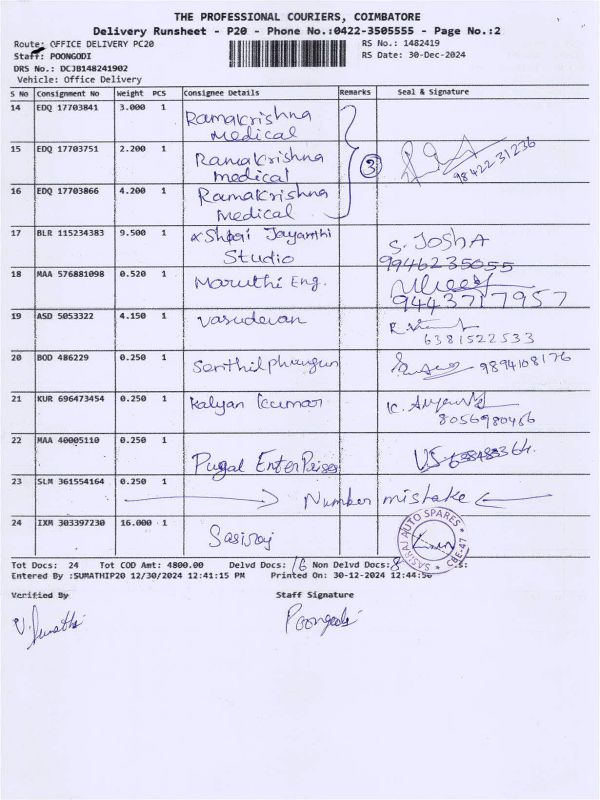 THE PROFESSIONAL COURIERS, COIMBATORE
Delivery Runsheet - P20 - Phone No.:0422-3505555 - Page No.:2
Route: OFFICE DELIVERY PC20 RS No.: 1482419
Staff: POONGODI RS Date: 30-Dec-2024
DRS No.: DCJB148241902
Vehicle: Office Delivery
S No Consignment No Weight PCS Consignee Details Remarks Seal & Signature
14 EDQ 17703841 3.000 1 Ramakrishna
Medical
15 EDQ 17703751 2.200 1 Ramakrishna 3 98422 31236
medical
16 EDQ 17703866 4.200 1 Ramakrishna
Medical
17 BLR 115234383 9.500 1 Shari Jayanthi S. JOSHA
Studio 9946235055
18 MAA 576881098 0.520 1 Maruthi Eng. 9443717957
19 ASD 5053322 4.150 1 Vasudevan 6381522533
20 BOD 486229 0.250 1 9894108176
21 KUR 696473454 0.250 1 Kalyan Kumar
8056980456
22 MAA 40005110 0.250 1
Pugal EnterPrises
23 SLM 361554164 0.250 1
Number mistake
24 IXM 303397230 16.000 1 Sasiraj SASIRAJ AUTO SPARES * CBE-47 *
Tot Docs: 24 Tot COD Amt: 4800.00 Delvd Docs: 16 Non Delvd Docs: 8
Entered By :SUMATHIP20 12/30/2024 12:41:15 PM Printed On: 30-12-2024 12:44:56
Verified By Staff Signature
V. Sumathi Poongodi